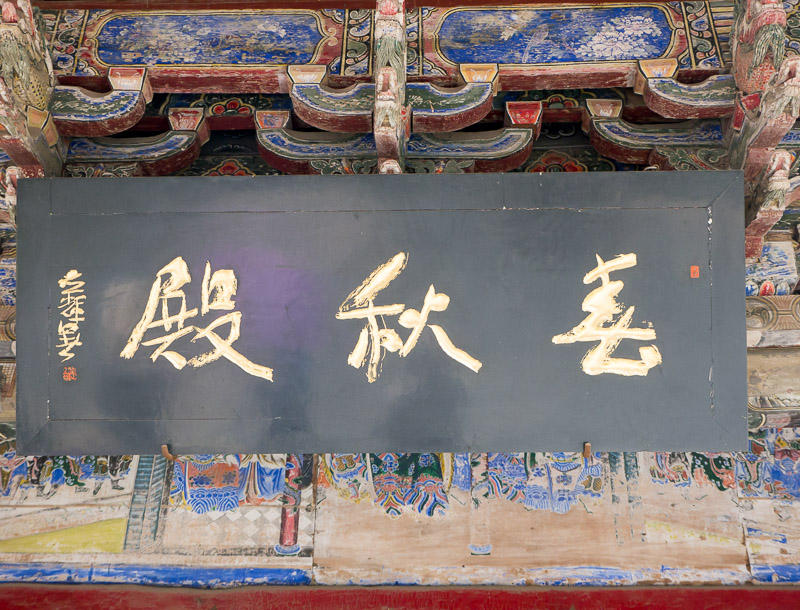 春秋殿